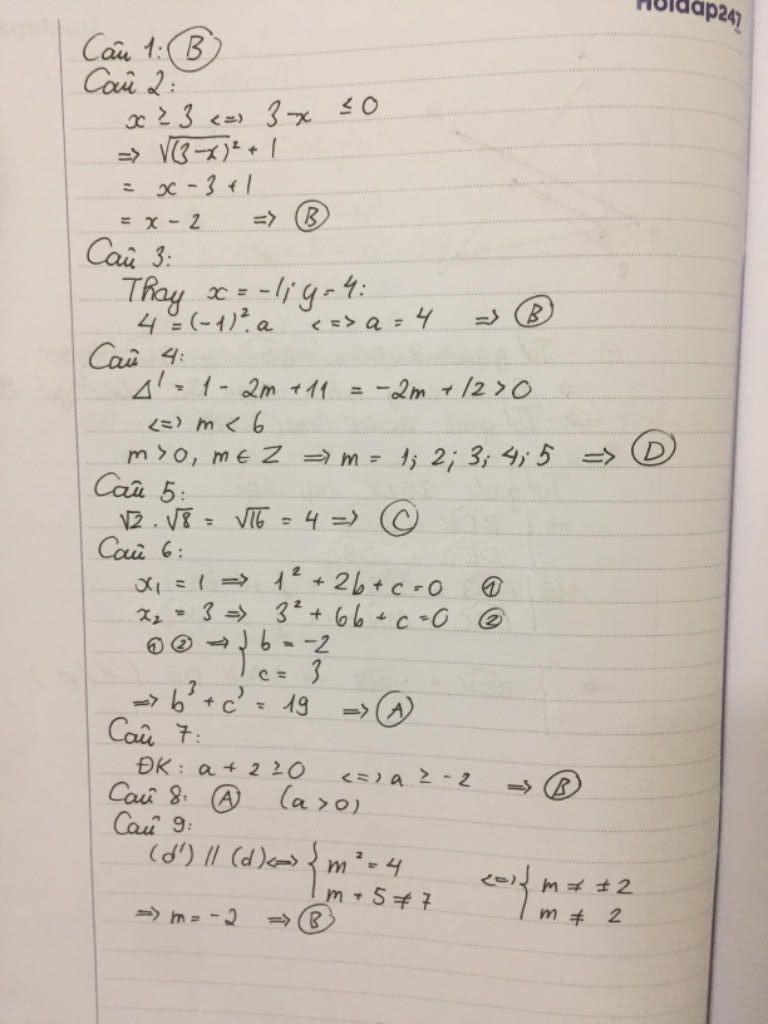 Hoidap247
Câu 1: B
Câu 2:
x ≥ 3 <=> 3-x ≤ 0
=> √(3-x)² + 1
= x - 3 + 1
= x - 2 => B
Câu 3:
Thay x = -1; y = 4:
4 = (-1)².a <=> a = 4 => B
Câu 4:
Δ' = 1 - 2m + 11 = -2m + 12 > 0
<=> m < 6
m > 0, m ∈ Z => m = 1; 2; 3; 4; 5 => D
Câu 5:
√2 . √8 = √16 = 4 => C
Câu 6:
x₁ = 1 => 1² + 2b + c = 0 ①
x₂ = 3 => 3² + 6b + c = 0 ②
① ② => { b = -2
c = 3
=> b³ + c³ = 19 => A
Câu 7:
ĐK: a + 2 ≥ 0 <=> a ≥ -2 => B
Câu 8: A (a > 0)
Câu 9:
(d') // (d) <=> { m² = 4 <=> { m = ±2
m + 5 ≠ 7 m ≠ 2
=> m = -2 => B